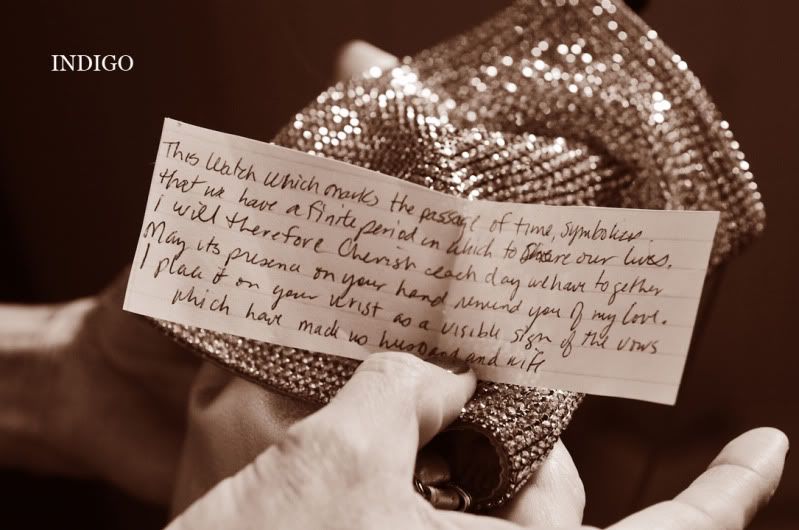 INDIGO
This Watch which marks the passage of time, symbolizes
that we have a finite period in which to share our lives.
i will therefore Cherish each day we have together
May its presence on your hand remind you of my love.
I place it on your wrist as a visible sign of the vows
which have made us husband and wife